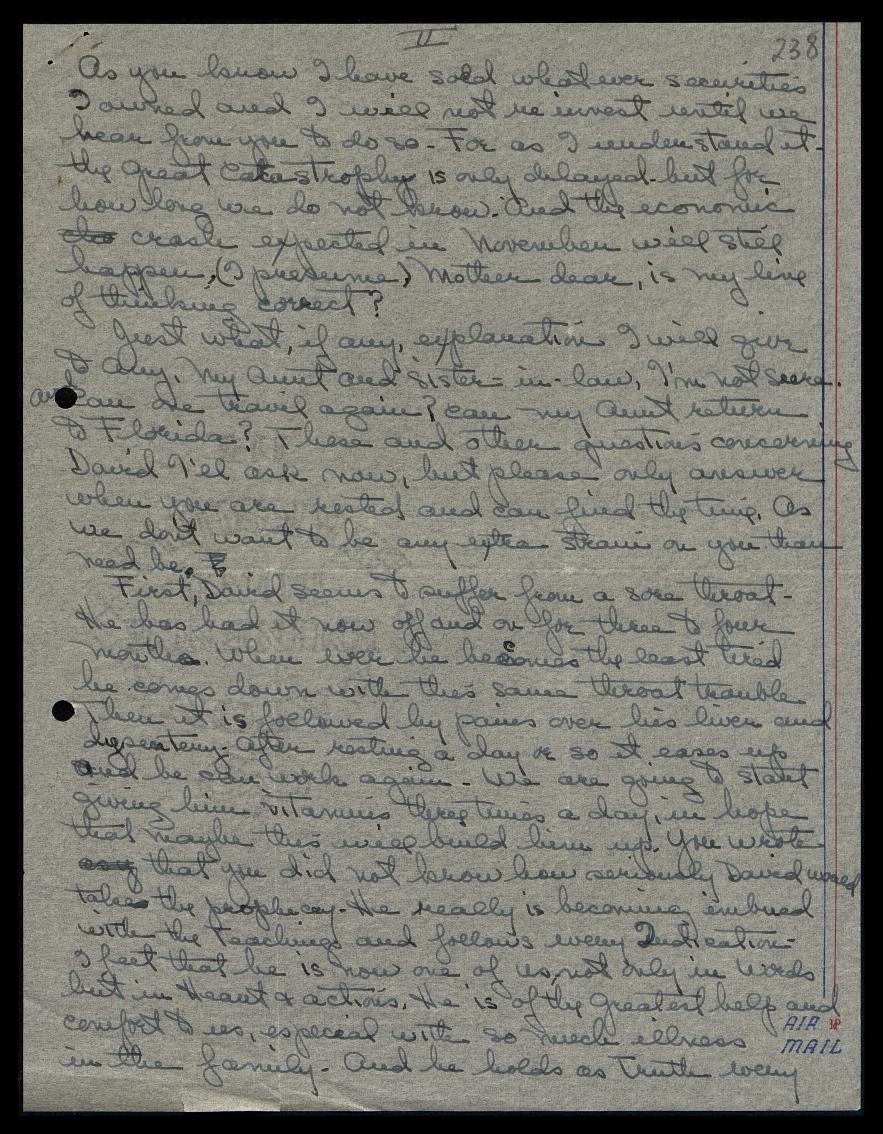 II
238
As you know I have sold whatever securities
I owned and I will not re invest until we
hear from you to do so - For as I understand it -
the great Catastrophy is only delayed - but for
how long we do not know. And the economic
crash expected in November will still
happen, (I presume) Mother dear, is my line
of thinking correct?
Just what, if any, explanation I will give
to any, my Aunt and sister-in-law, I'm not sure.
and Can one travel again? can my Aunt return
to Florida? These and other questions concerning
David I'll ask now, but please only answer
when you are rested and can find the time. As
we don't want to be any extra strain on you than
need be.
First, David seems to suffer from a sore throat -
He has had it now off and on for three to four
months. When ever he becomes the least tired
he comes down with this same throat trouble
Then it is followed by pains over his liver and
dysentery - after resting a day or so it eases up
and he can work again - We are going to start
giving him vitamins three times a day, in hope
that maybe this will build him up. You wrote
that you did not know how seriously David would
take the prophecy - He really is becoming imbued
with the Teachings and follows every Indication -
I feel that he is now one of us, not only in words
but in Heart & actions. He is of the greatest help and
comfort to us, especial with so much illness
in the family - And he holds as Truth every
AIR
MAIL